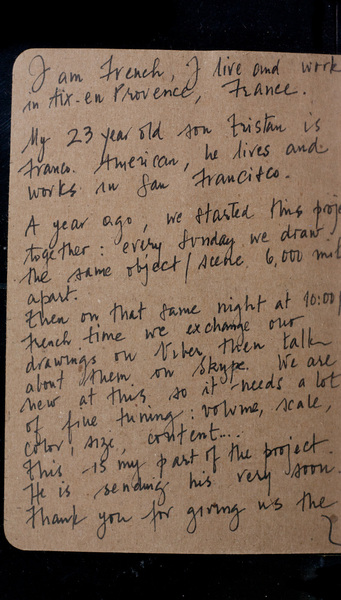 I am French, I live and work
in Aix-en Provence, France.
My 23 year old son Tristan is
Franco-American, he lives and
works in San Francisco.
A year ago, we started this proje
together: every Sunday we draw
the same object/scene 6,000 mil
apart.
Then on that same night at 10:00p
French time we exchange our
drawings on Viber, then talk
about them on Skype. We are
new at this so it needs a lot
of fine tuning: volume, scale,
color, size, content...
This is my part of the project.
He is sending his very soon.
Thank you for giving us the